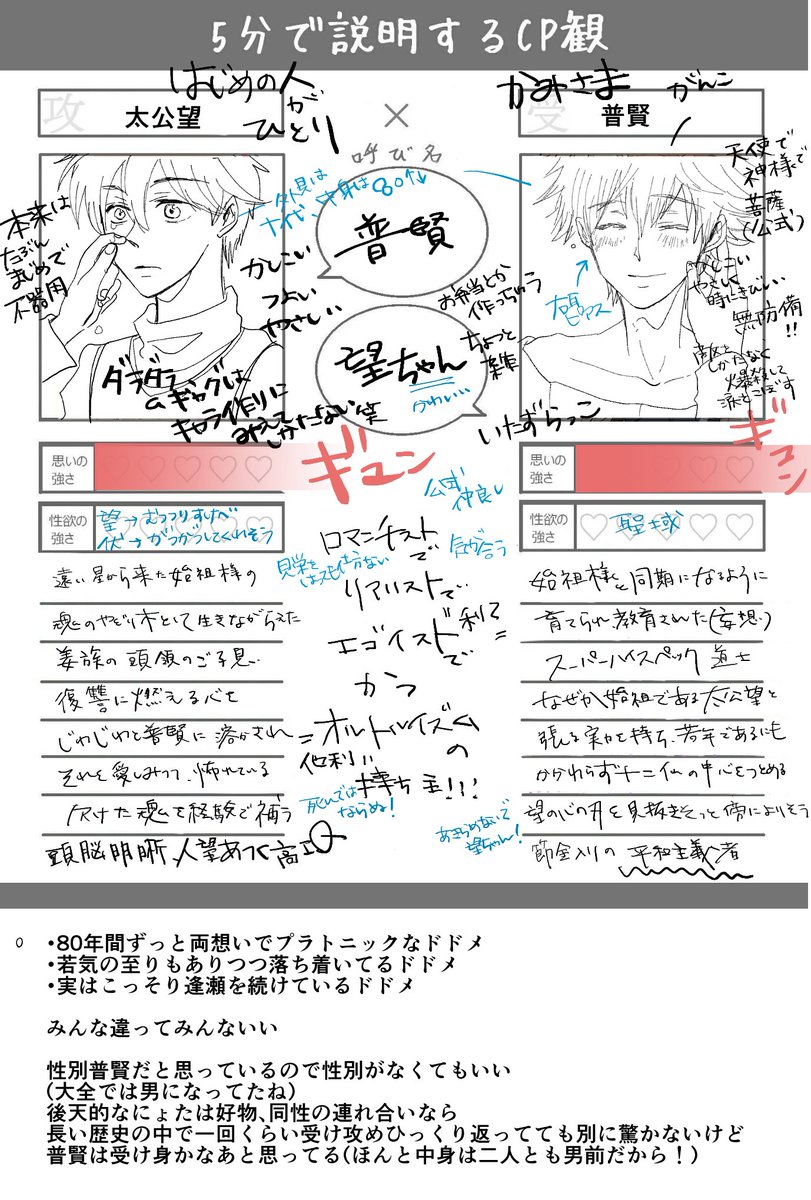 5分で説明するCP観
はじめの人
が
ひとり
かみさま
がんこ
攻
太公望
×
受
普賢
呼び名
外見は
十代、中身は80↑↓
普賢
望ちゃん
かわいい…
本来は
たぶん
まじめで
不器用
かしこい
つよい
やさしい
ダラダラ
ギャグは
キャラ作りに
みえて
しかたない笑
お弁当とか
作っちゃう
ちょっと
雑
いたずらっこ
天使で
神様で
菩薩
(公式)
かしこい
やさしい
時にきびしい
無防備
!!
敵を
しかたなく
爆殺して
涙をこぼす
右耳
ピアス
思いの
強さ
ギュン
思いの
強さ
ギュン
性欲の
強さ
望→むっつりすけべ
伏→がつがつしてくれそう
性欲の
強さ
聖域
公式
仲良し
気が合う
ロマンチスト
で
リアリストで…
エゴイスト
で
利己
=
かつ
=オルトルイズム
他利
の
持ち主!!!
死んでは
ならぬ!
あきらめないで
望ちゃん!
遠い星から来た始祖様の
魂のやどり木として生きながらえた
姜族の頭領のご子息
復讐に燃える心を
じわじわと普賢に溶かされ
それを愛しみつつ怖れている
欠けた魂を経験で補う
頭脳明晰 人望あつく高IQ
始祖様と同期になるように
育てられ教育された(妄想)
スーパーハイスペック道士
なぜか始祖である太公望と
張る実力を持ち、若年であるにも
かかわらず十二仙の中心をつとめる
望の心の刃を見抜きそっと傍によりそう
筋金入りの平和主義者
・80年間ずっと両想いでプラトニックなドドメ
・若気の至りもありつつ落ち着いてるドドメ
・実はこっそり逢瀬を続けているドドメ
みんな違ってみんないい
性別普賢だと思っているので性別がなくてもいい
(大全では男になってたね)
後天的なにょたは好物、同性の連れ合いなら
長い歴史の中で一回くらい受け攻めひっくり返ってても別に驚かないけど
普賢は受け身かなあと思ってる(ほんと中身は二人とも男前だから!)